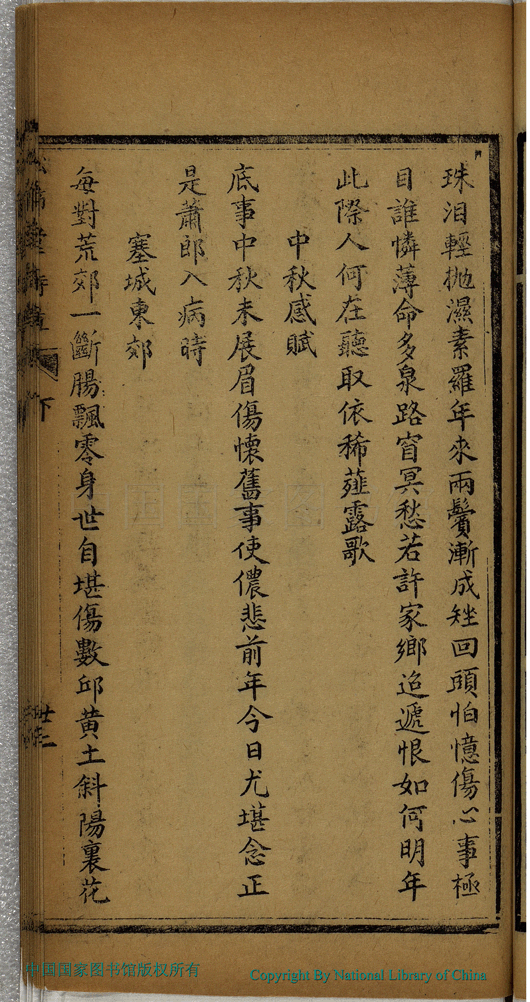 珠泪輕抛濕素羅年來兩鬢漸成矬回頭怕憶傷心事極
目誰憐薄命多泉路窅冥愁若許家鄉迢遞恨如何明年
此際人何在聽取依稀薤露歌
中秋感賦
底事中秋未展眉傷懷舊事使儂悲前年今日尤堪念正
是蕭郎入病時
塞城東郊
每對荒郊一斷腸飄零身世自堪傷數邱黃土斜陽裏花
下
中国国家图书馆版权所有
Copyright By National Library of China